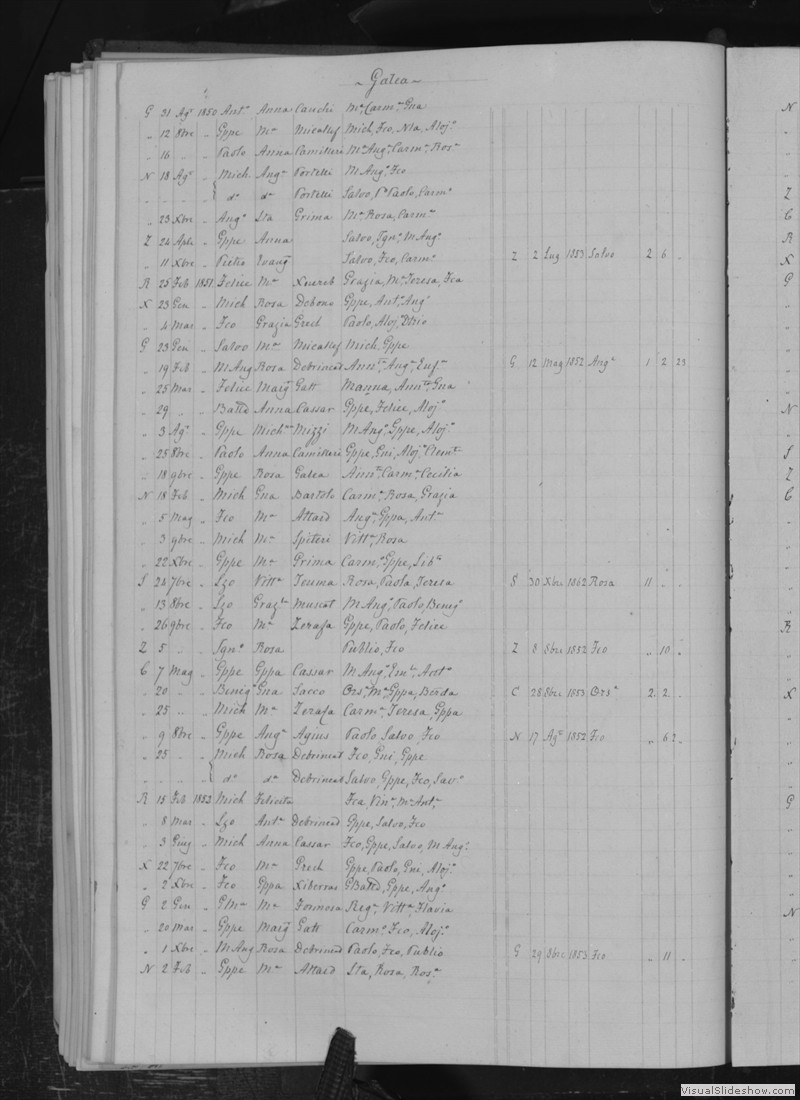 Galea
G 31 Agº 1850 Antº Anna Cauchi Mª, Carmª, Gna
" 12 8bre " Gppe Mª Micallef Mich, Fco, Nta, Alojº
" 16 " " Paolo Anna Camilleri Mª Angª, Carmª, Rosª
N 18 Agº " Mich Angª Portelli M Angº, Fco
" " " " dº dº Portelli Salvo, Pº Paolo, Carmº
" 23 Xbre " Angº Sta Grima Mª, Rosa, Carmª
Z 24 Aple " Gppe Anna Salvo, Ignº, M Angº
" 11 Xbre " Pietro Evangª Salvo, Fco, Carmº Z 2 Lug 1853 Salvo 2 6 "
R 25 Feb 1851 Felice Mª Xuereb Grazia, Mª, Teresa, Fca
X 23 Gen " Mich Rosa Debono Gppe, Antº, Angº
" 4 Mar " Fco Grazia Grech Paolo, Alojº
G 23 Gen " Salvo Mª Micallef Mich, Gppe
" 19 Feb " M Ang Rosa Debrincat Annª, Angª, G 12 Mag 1852 Angª 1 2 23
" 25 Mar " Felice Margª Gatt Manna, Annª, Gna
" 29 " " Batta Anna Cassar Gppe, Felice, Alojº
" 3 Agº " Gppe Michª Mizzi M Angº, Gppe, Alojº
" 25 8bre " Paolo Anna Camilleri Gppe, Gni, Alojº, Clemt
" 18 9bre " Gppe Rosa Galea Annª, Carmª, Cecilia
N 18 Feb " Mich Gna Bartolo Carmª, Rosa, Grazia
" 5 Mag " Fco Mª Attard Angª, Gppa, Antª
" 3 9bre " Mich Mª Spiteri Vittª, Rosa
" 22 Xbre " Gppe Mª Grima Carmº, Gppe,
S 24 7bre " Lzo Vittª Touma Rosa, Paola, Teresa S 30 Xbre 1862 Rosa 11 " "
" 13 8bre " Lzo Grazª Muscat M Angº, Paolo, Benigº
" 26 9bre " Fco Mª Zerafa Gppe, Paolo, Felice
Z 5 " " Ignº Rosa Publio, Fco Z 8 8bre 1852 Fco " 10 "
C 7 Mag " Gppe Gppa Cassar M Angº, Emº, Antº
" 20 " " Benigº Gna Sacco Orsª, Mª, Gppa, C 28 8bre 1853 Orsª 2 2 "
" 25 " " Mich Mª Zerafa Carmª, Teresa, Gppa
" 9 8bre " Gppe Angª Agius Paolo, Salvo, Fco N 17 Agº 1852 Fco " 6?
" 25 " " Mich Rosa Debrincat Fco, Gni, Gppe
" " " " dº dº Debrincat Salvo, Gppe, Fco, Savº
R 15 Feb 1852 Mich Felicita Fca, Vinª, Mª Antª
" 8 Mar " Lzo Antª Debrincat Gppe, Salvo, Fco
" 3 Giug " Mich Anna Cassar Fco, Gppe, Salvo, M Angº
X 22 7bre " Fco Mª Grech Gppe, Paolo, Gni, Alojº
" 2 Xbre " Fco Gppa Xiberras G Batta, Gppe, Angº
G 2 Gen " Mª Formosa Regª, Vittª, Flavia
" 20 Mar " Gppe Margª Gatt Carmº, Fco, Alojº
" 1 Xbre " M Ang Rosa Debrincat Paolo, Fco, Publio G 29 8bre 1853 Fco " 11 "
N 2 Feb " Gppe Mª Attard Sta, Rosa, Rosª
N
Z
C
R
X
G
N
S
Z
C
R
X
G
N
VisualSlideshow.com